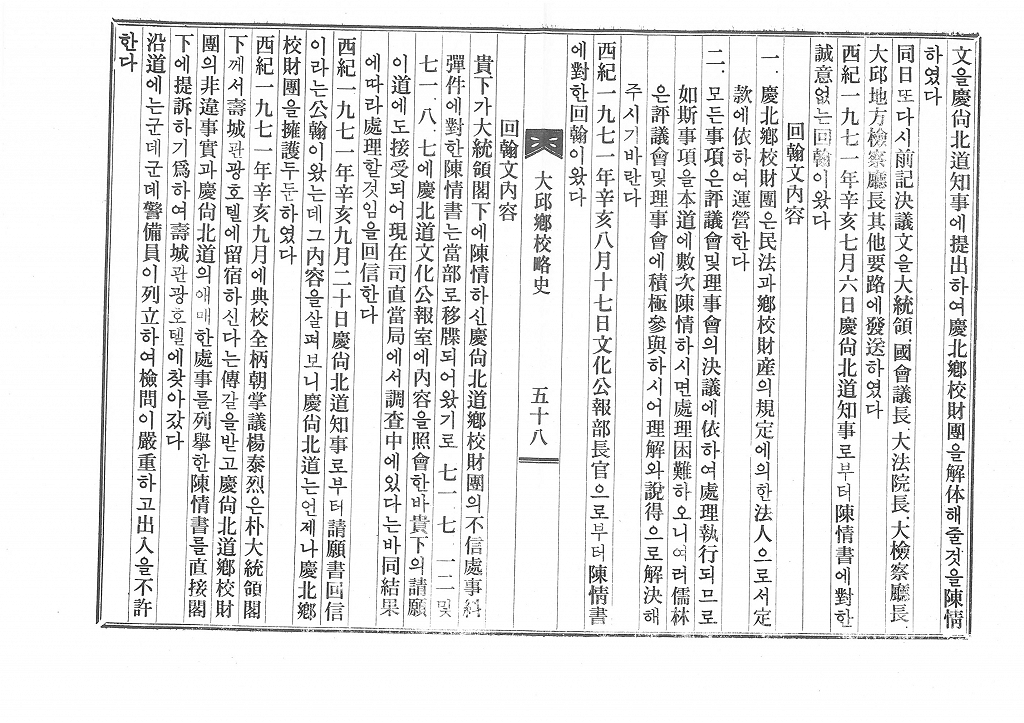 文을慶尙北道知事에提出하여慶北鄕校財團을解体해줄것을陳情
하였다
同日또다시前記決議文을大統領.國會議長.大法院長.大檢察廳長.
大邱地方檢察廳長其他要路에發送하였다
西紀一九七一年辛亥七月六日慶尙北道知事로부터陳情書에對한
誠意없는回翰이왔다
回翰文內容
一.慶北鄕校財團은民法과鄕校財産의規定에의한法人으로서定
款에依하여運營한다
二.모든事項은評議會및理事會의決議에依하여處理執行되므로
如斯事項을本道에數次陳情하시면處理困難하오니여러儒林
은評議會및理事會에積極參與하시어理解와說得으로解決해
주시기바란다
西紀一九七一年辛亥八月十七日文化公報部長官으로부터陳情書
에對한回翰이왔다
大邱鄕校略史 五十八
回翰文內容
貴下가大統領閣下에陳情하신慶尙北道鄕校財團의不信處事糾
彈件에對한陳情書는當部로移牒되어왔기로 七一.七.一二및
七一.八.七에慶北道文化公報室에內容을照會한바貴下의請願
이道에도接受되어現在司直當局에서調査中에있다는바同結果
에따라處理할것임을回信한다
西紀一九七一年辛亥九月二十日慶尙北道知事로부터請願書回信
이라는公翰이왔는데그內容을살펴보니慶尙北道는언제나慶北鄕
校財團을擁護두둔하였다
西紀一九七一年辛亥九月에典校全柄朝掌議楊泰烈은朴大統領閣
下께서壽城관광호텔에留宿하신다는傳갈을받고慶尙北道鄕校財
團의非違事實과慶尙北道의애매한處事를列擧한陳情書를直接閣
下에提訴하기爲하여壽城관광호텔에찾아갔다
沿道에는군데군데警備員이列立하여檢問이嚴重하고出入을不許
한다